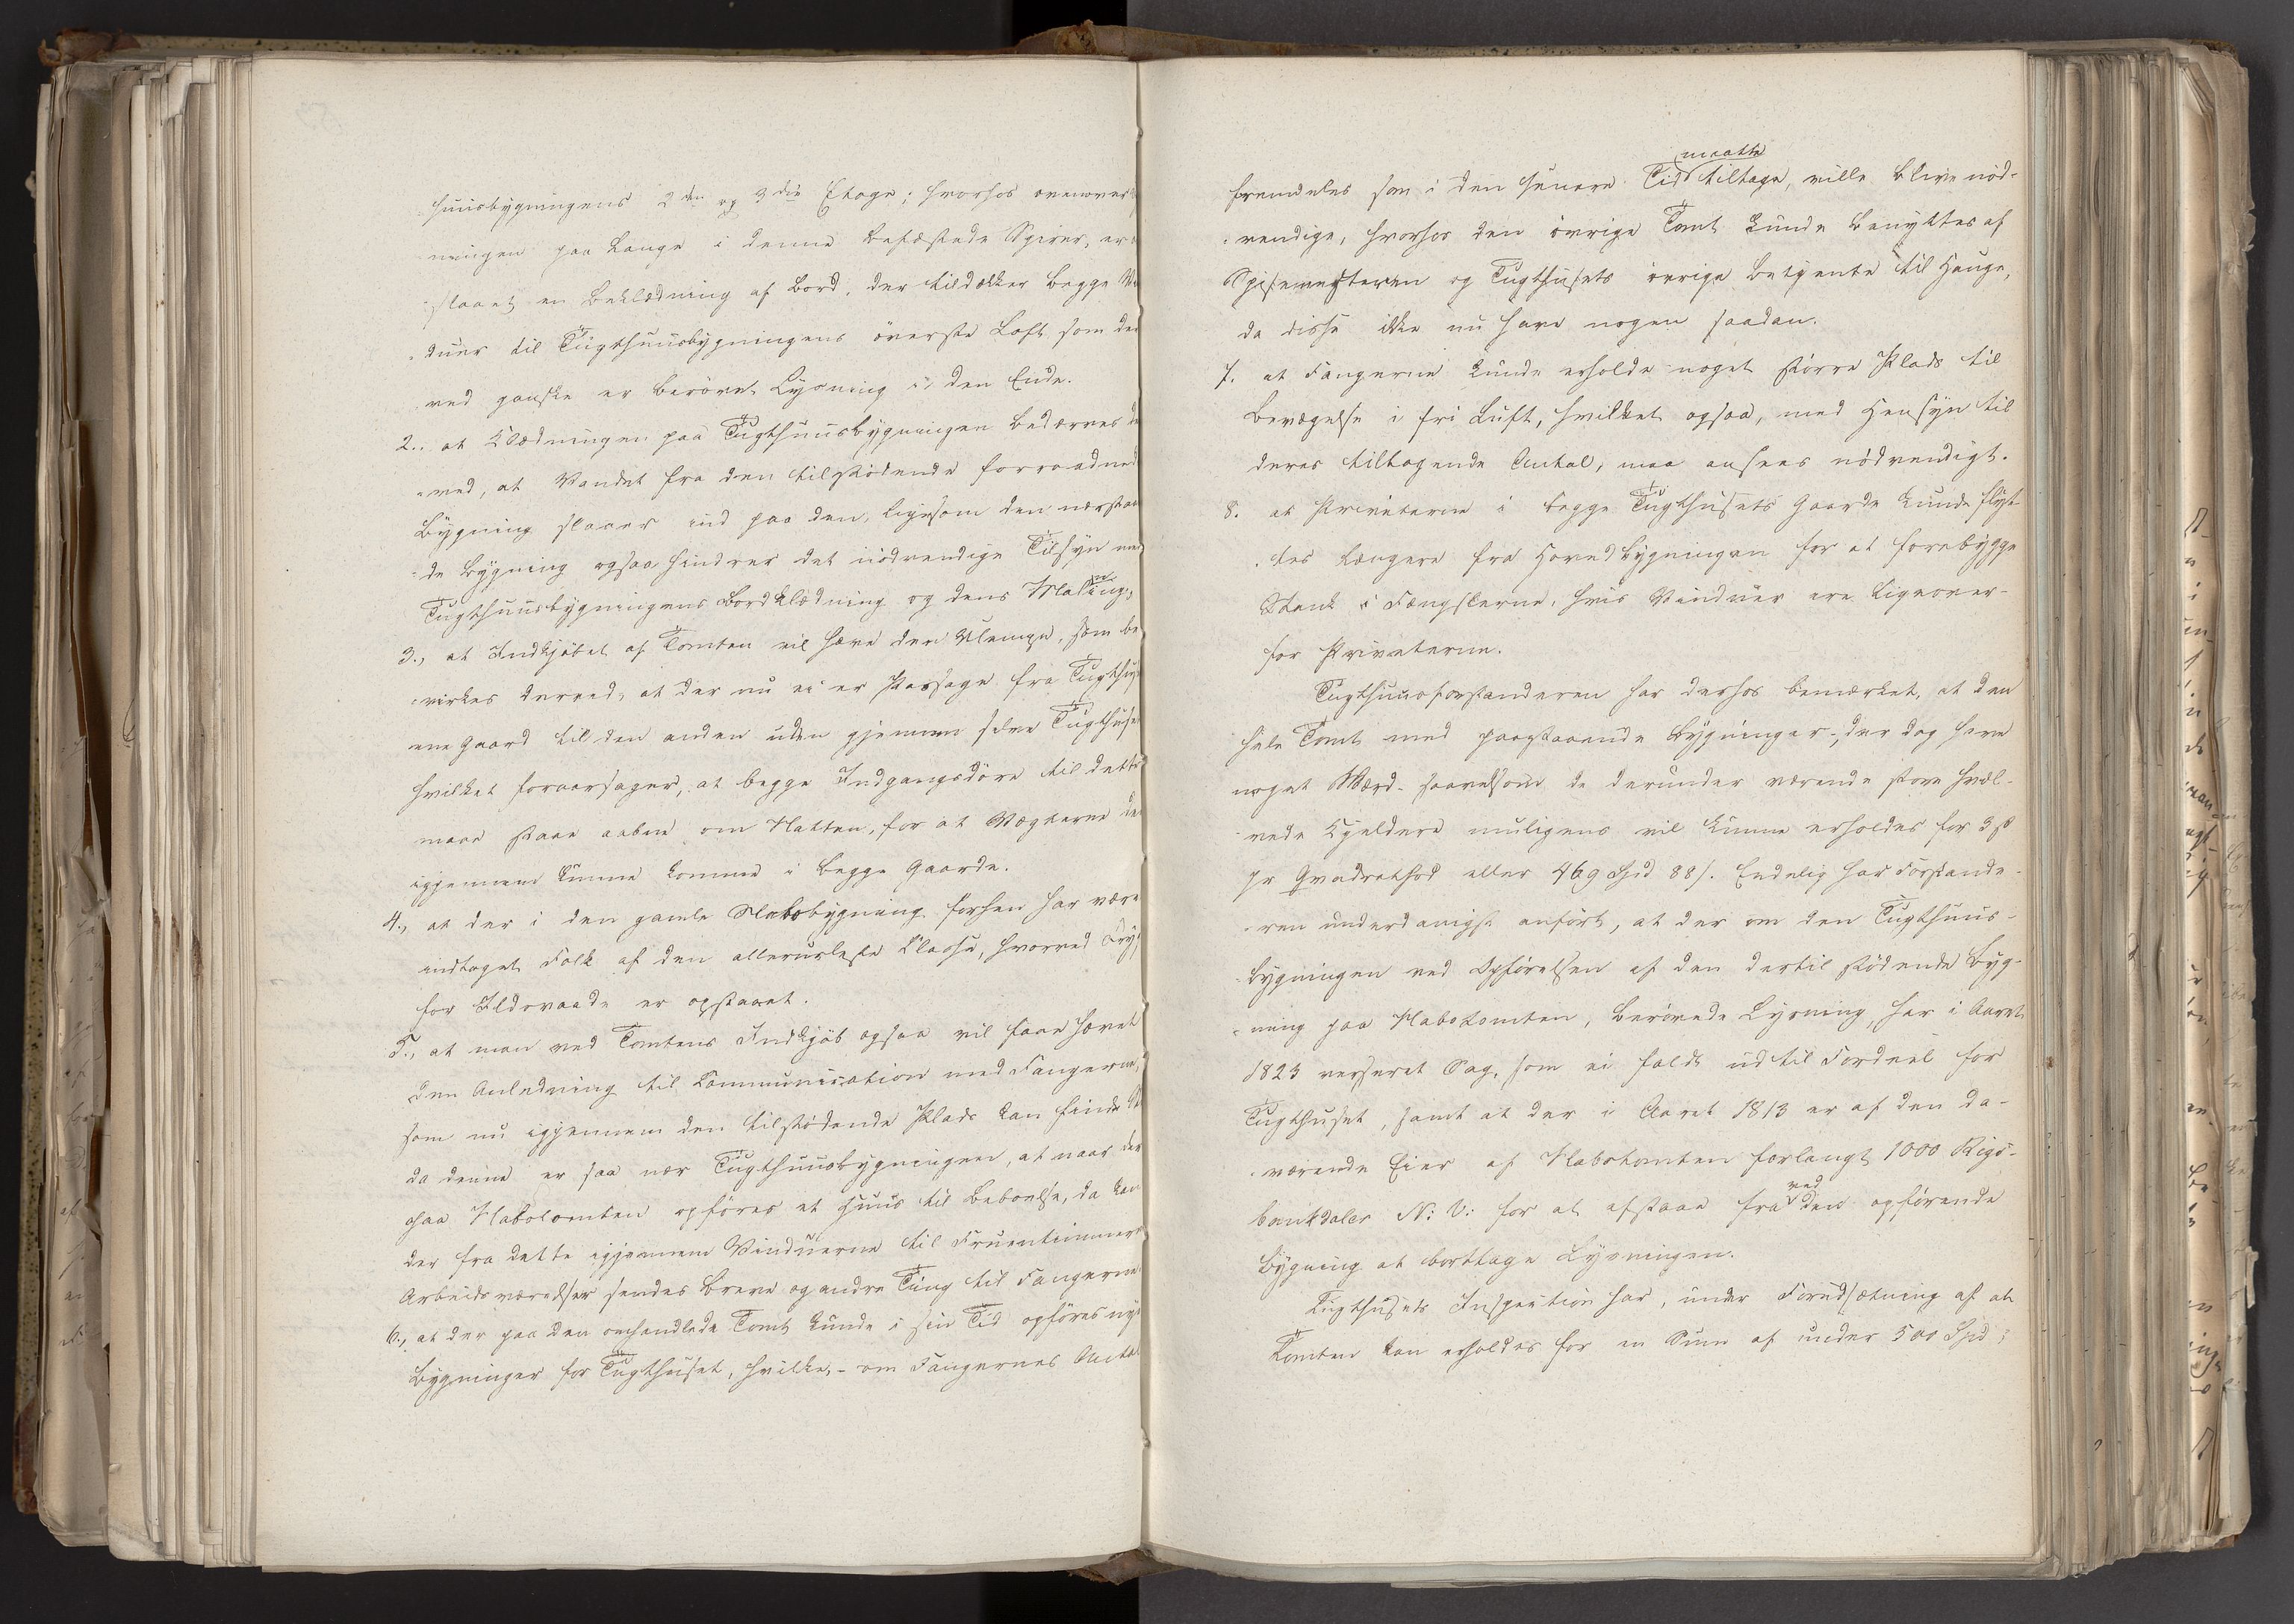 huusbygningens 2den og 3die Etage; hvorhos ovenover
ningen paa Lauge i denne befæstede Spirer, er
slaaet en Beklædning af Bord, der tildækker begge
duer til Tugthuusbygningens överste Loft som der
ved ganske er berövet Lysning i den Ende.
2., at Klædningen paa Tugthuusbygningen bedærves
ved, at Vandet fra den tilstödende forraadnede
Bygning slaaer ind paa den, ligesom den nærstaaen
de Bygning ogsaa hindrer det nödvendige Tilsyn med
Tugthuusbygningens Bordklædning og dens Maling,
3., at Indkjöbet af Tomten vil hæve den Ulempe, som be
virkes derved, at der nu ei er Passage fra Tugthusets
ene Gaard til den anden uden gjennem selve Tugthuset
hvilket foraarsager, at begge Indgangsdöre til dette
maae staae aabne om Natten, for at Vægterne der
igjennem kunne komme i begge Gaarde.
4., at der i den gamle Nabobygning forhen har været
indtaget Folk af den allerusleste Classe, hvorved Frygt
for Ildsvaade er opstaaet.
5., at man ved Tomtens Indkjöb ogsaa vil faae hævet
den Anledning til Communication med Fangerne,
som nu igjennem den tilstödende Plads kan finde
da denne er saa nær Tugthuusbygningen, at naar der
paa Nabotomten opföres et Huus til Beboelse, da kan
der fra dette igjennem Vinduerne til Fruentimmer
Arbeidsværelser sendes Breve og andre Ting til Fangerne
6., at der paa den omhandlede Tomt kunde i sin Tid opföres nye
Bygninger for Tugthuset, hvilke, - om Fangernes Antal
fremdeles som i den senere Tid maatte tiltage, ville blive nöd-
vendige, hvorhos den övrige Tomt kunde benyttes af
Spisemesteren og Tugthusets övrige Betjente til Hauge,
da disse ikke nu have nogen saadan.
7. at Fangerne kunde erholde noget större Plads til
Bevægelse i fri Luft, hvilket ogsaa, med Hensyn til
deres tiltagende Antal, maa ansees nödvendigt.
8. at Privaterne i begge Tugthusets Gaarde kunde flyt-
tes længere fra Hovedbygningen for at forebygge
Stank i Fængslerne, hvis Vinduer ere ligeover-
for Privaterne.
Tugthuusforstanderen har derhos bemærket, at den
hele Tomt med paastaaende Bygninger, der dog have
noget Værd - saavelsom de derunder værende store hvæl-
vede Kjeldere muligens vil kunne erholdes for 3 ß
pr Qvadratfod eller 469 Spd 88 ß. Endelig har Forstande-
ren underdanigst anfört, at der om den Tugthuus-
bygningen ved Opförelsen af den dertil stödende Byg-
ning paa Nabotomten, berövede Lysning, har i Aaret
1823 verseret Sag, som ei faldt ud til Fordeel for
Tugthuset, samt at der i Aaret 1813 er af den da-
værende Eier af Nabotomten forlangt 1000 Rigs-
bankdaler N: V: for at afstaae fra ved den opförende
Bygning at borttage Lysningen.
Tugthusets Inspection har, under Forudsætning af at
Tomten kan erholdes for en Sum af under 500 Spd,